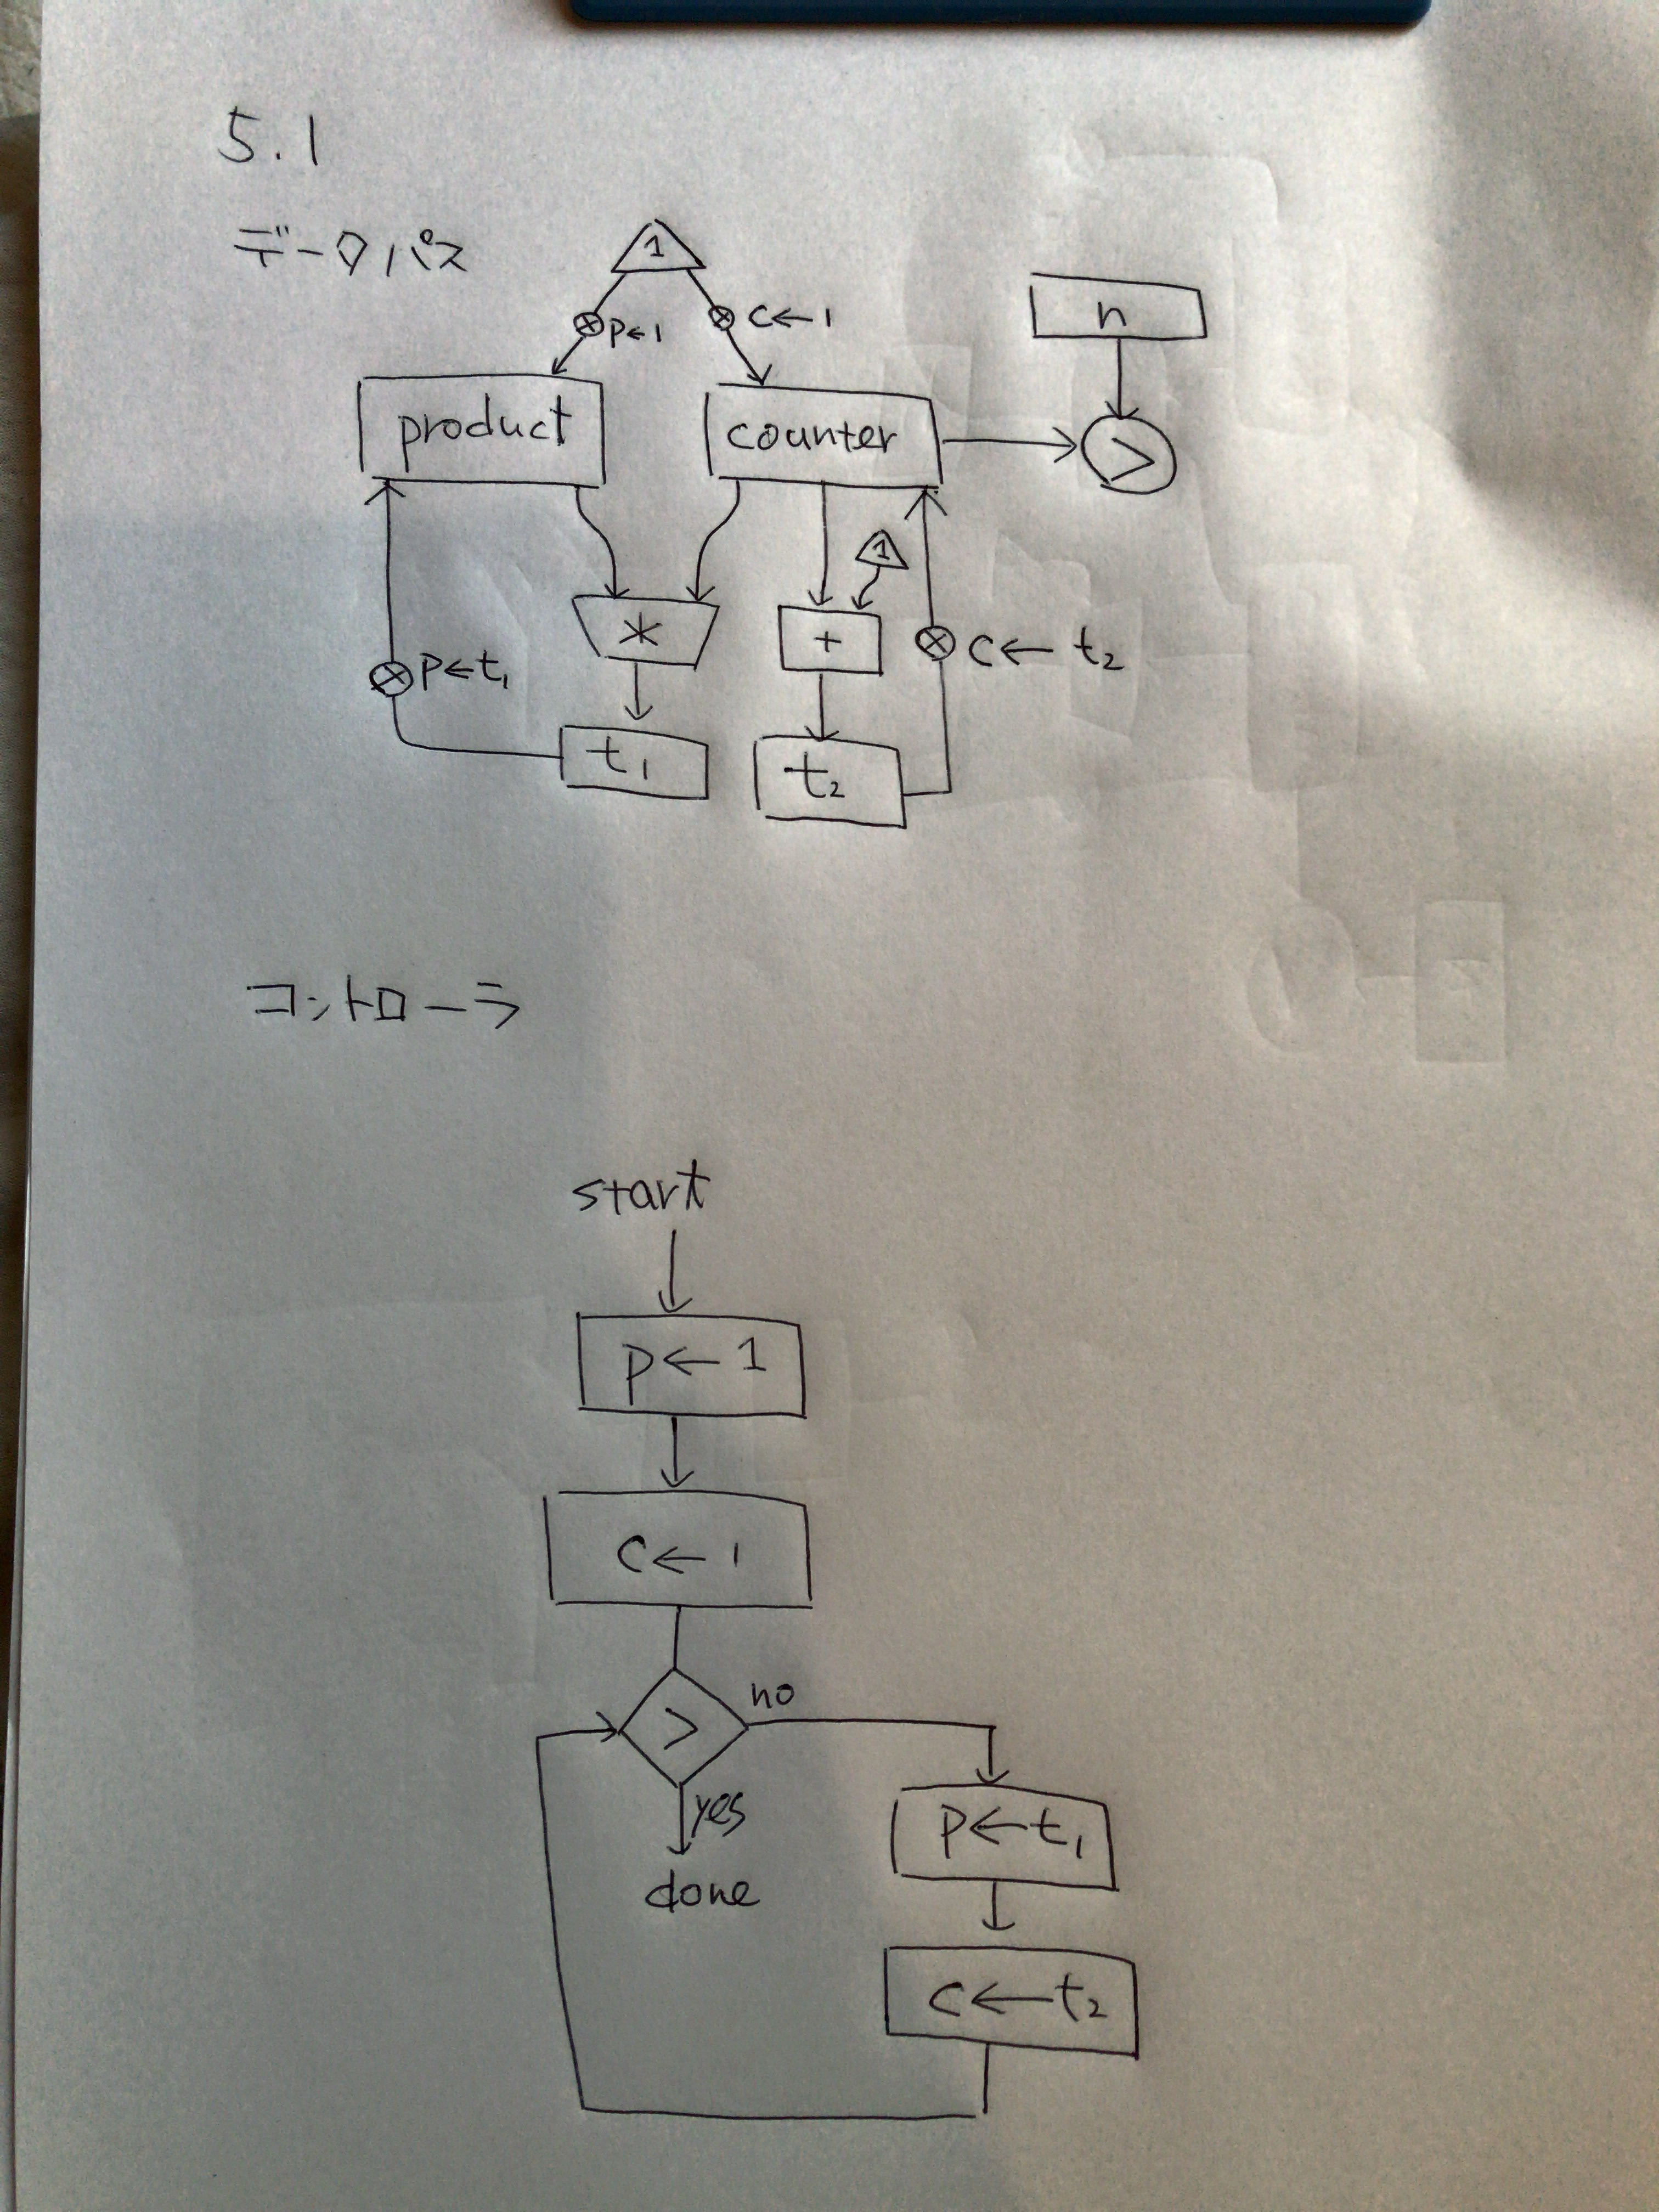 5.1
データパス
1
p←1
c←1
n
product
counter
>
1
*
+
p←t₁
c←t₂
t₁
t₂
コントローラ
start
p←1
c←1
>
no
yes
done
p←t₁
c←t₂